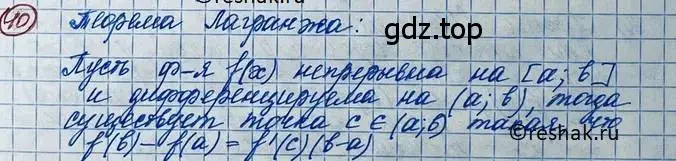 40 Теорема Лагранжа:
gdz.top
Пусть ф-я f(x) непрерывна на [a; b]
и дифференцируема на (a; b), тогда
существует точка c ∈ (a; b) такая, что
f(b) - f(a) = f'(c)(b-a)
©reshak.ru